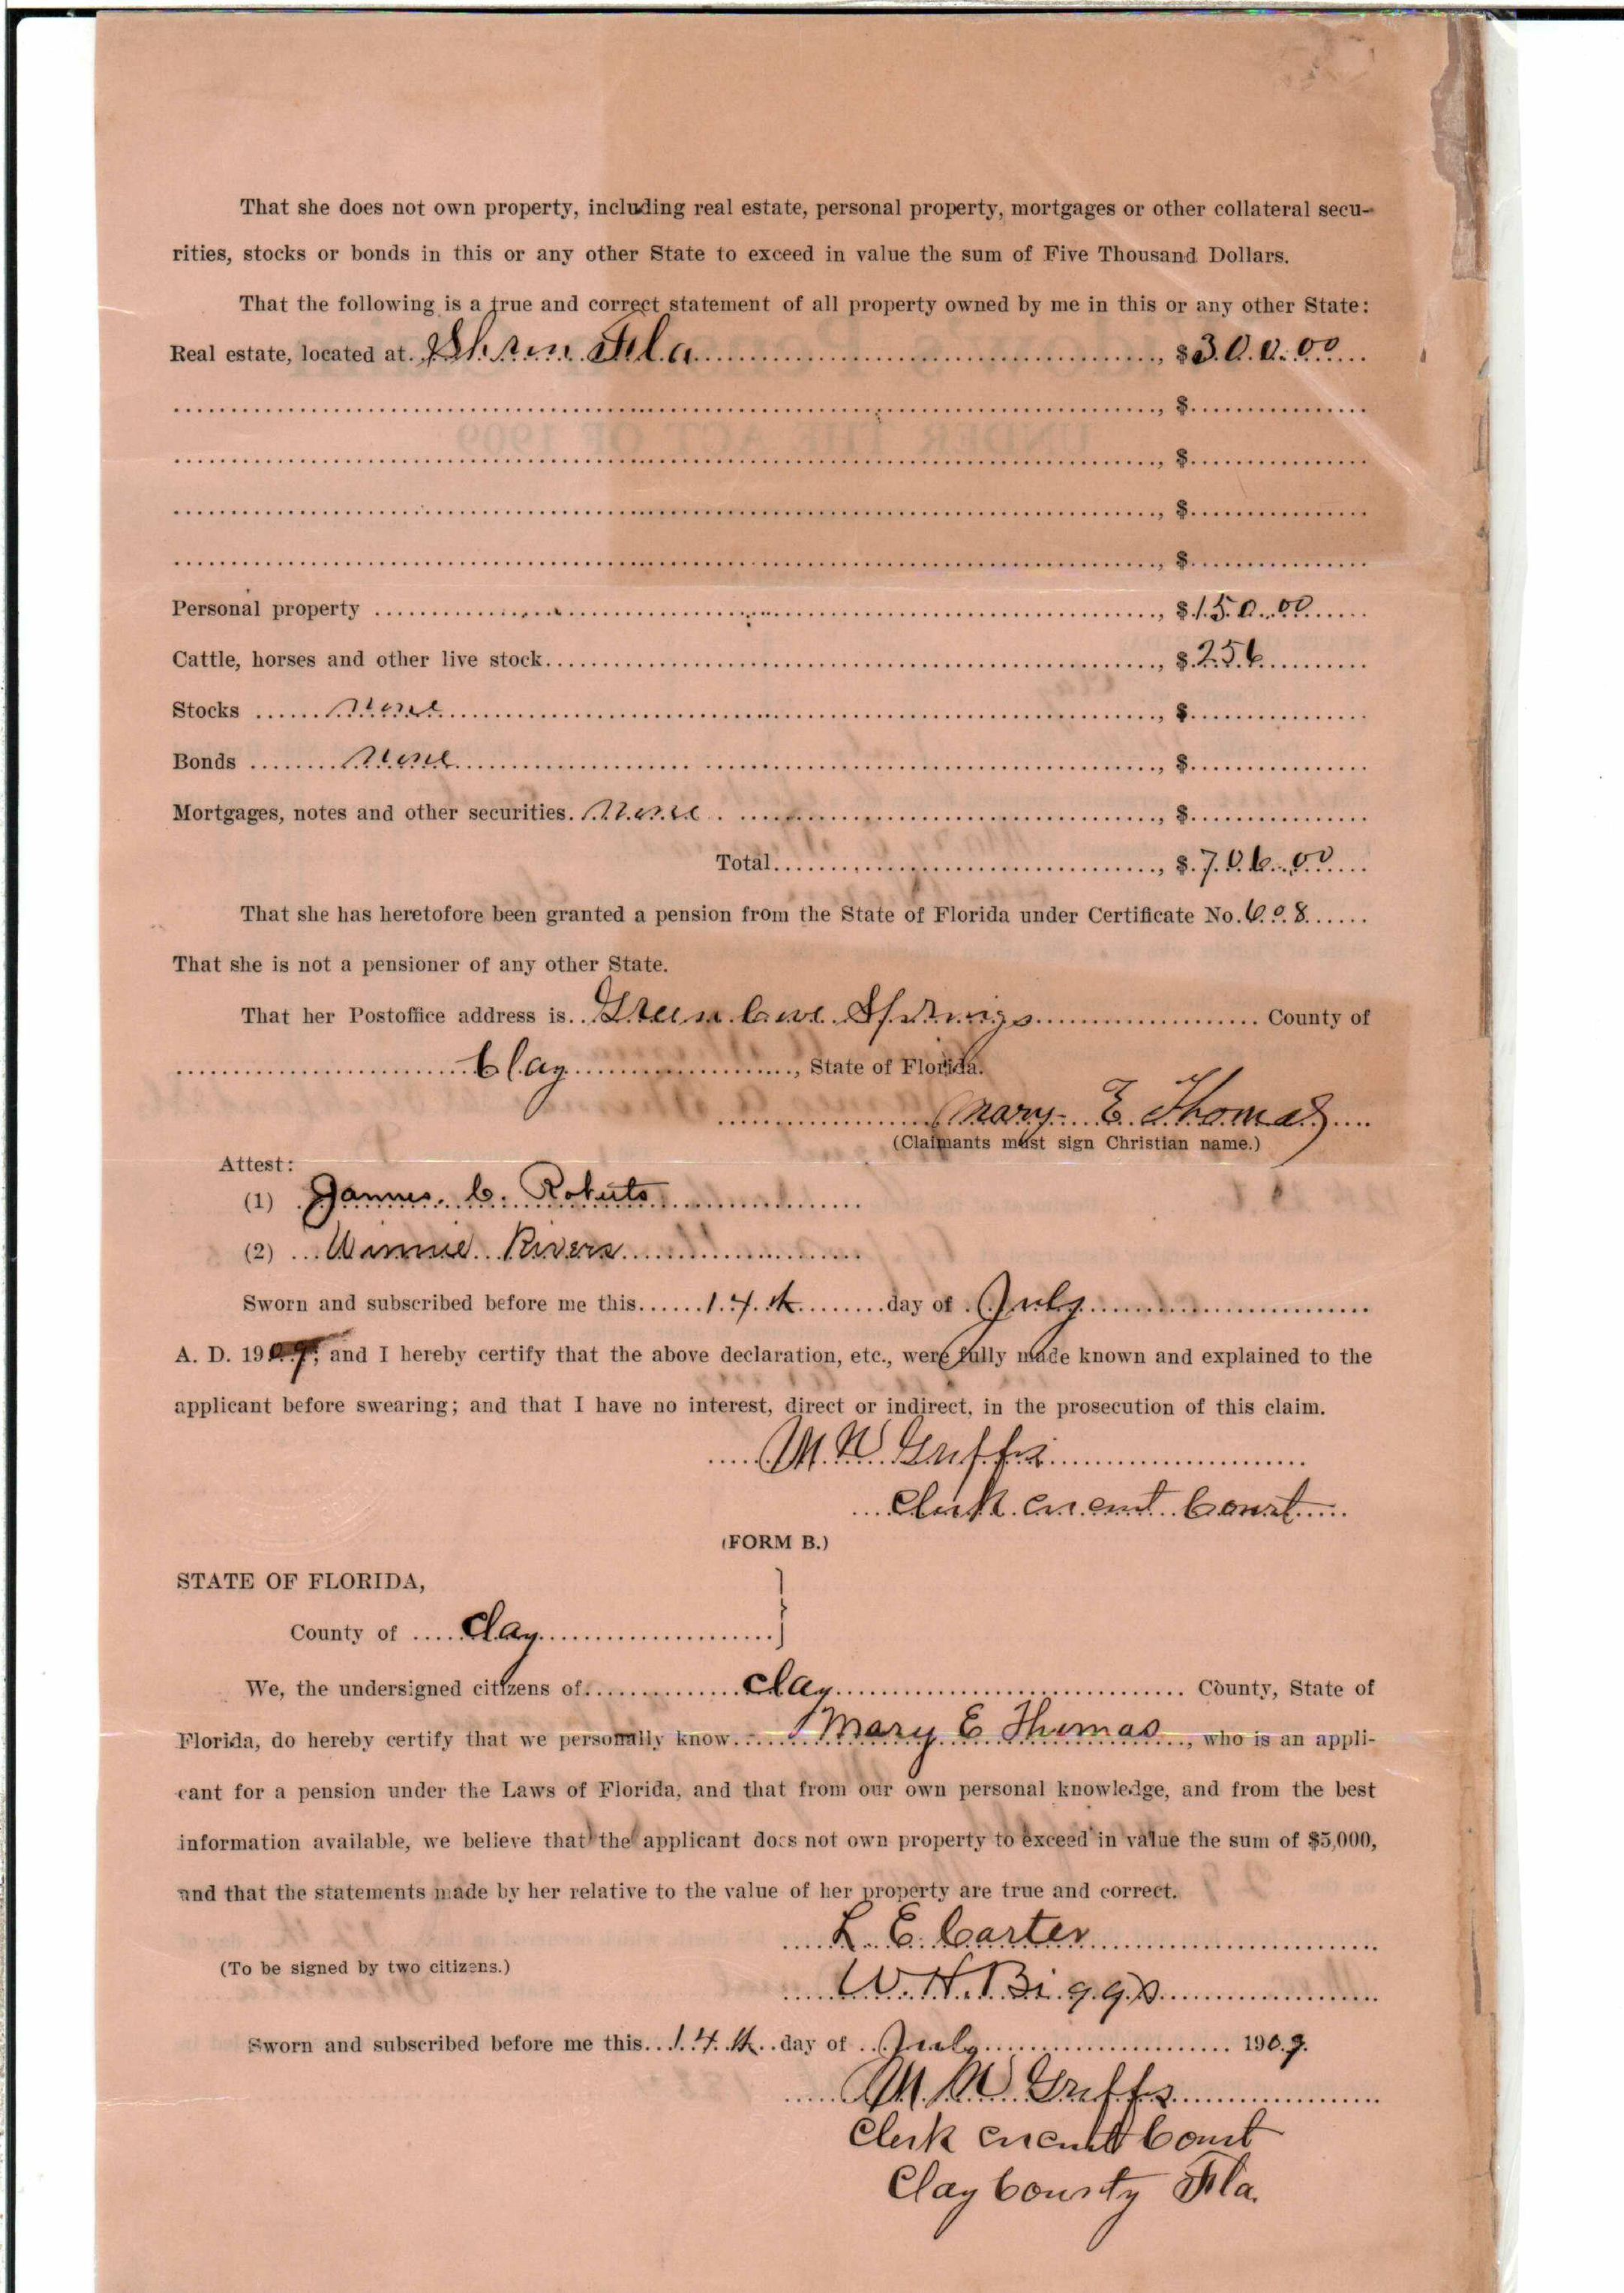 That she does not own property, including real estate, personal property, mortgages or other collateral secu-
rities, stocks or bonds in this or any other State to exceed in value the sum of Five Thousand Dollars.
That the following is a true and correct statement of all property owned by me in this or any other State:
Real estate, located at Fla, $300.00
, $
UNDER THE ACT OF 1909
, $
, $
, $
Personal property, $150.00
Cattle, horses and other live stock, $256
Stocks none, $
Bonds none, $
Mortgages, notes and other securities. none, $
Total, $706.00
That she has heretofore been granted a pension from the State of Florida under Certificate No. 608
That she is not a pensioner of any other State.
That her Postoffice address is Green Cove Springs County of
Clay, State of Florida.
Mary E. Thomas
(Claimants must sign Christian name.)
Attest:
(1) James C. Roberts
(2) Winnie Rivers
Sworn and subscribed before me this 14th day of July
A. D. 1909, and I hereby certify that the above declaration, etc., were fully made known and explained to the
applicant before swearing; and that I have no interest, direct or indirect, in the prosecution of this claim.
M. W. Griffis
Clerk circuit Court
(FORM B.)
STATE OF FLORIDA,
County of Clay
We, the undersigned citizens of Clay County, State of
Florida, do hereby certify that we personally know Mary E Thomas, who is an appli-
cant for a pension under the Laws of Florida, and that from our own personal knowledge, and from the best
information available, we believe that the applicant does not own property to exceed in value the sum of $5,000,
and that the statements made by her relative to the value of her property are true and correct.
L. E. Carter
(To be signed by two citizens.)
W. H. Biggs
Sworn and subscribed before me this 14th day of July 1909.
M. W. Griffis
Clerk circuit Court
Clay County Fla.